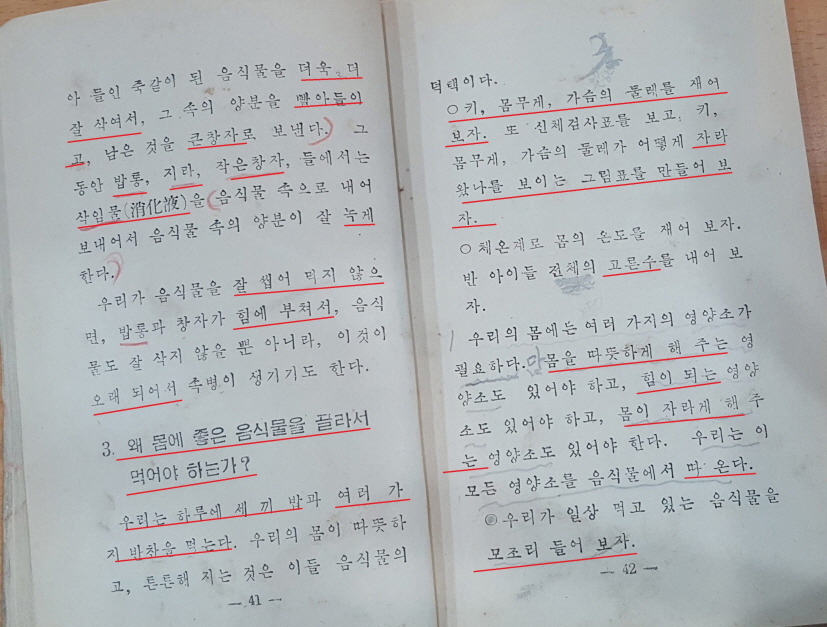 아 들인 죽같이 된 음식물을 더욱 더
잘 삭여서, 그 속의 양분을 빨아들이
고, 남은 것을 큰창자로 보낸다. 그
동안 밥통, 지라, 작은창자, 들에서는
삭임물(消化液)을 음식물 속으로 내어
보내어서 음식물 속의 양분이 잘 녹게
한다.
우리가 음식물을 잘 씹어 먹지 않으
면, 밥통과 창자가 힘에 부쳐서, 음식
물도 잘 삭지 않을 뿐 아니라, 이것이
오래 되어서 속병이 생기기도 한다.
3. 왜 몸에 좋은 음식물을 골라서
먹어야 하는가?
우리는 하루에 세 끼 밥과 여러 가
지 반찬을 먹는다. 우리의 몸이 따뜻하
고, 튼튼해 지는 것은 이들 음식물의
— 41 —
덕택이다.
○키, 몸무게, 가슴의 둘레를 재어
보자. 또 신체검사표를 보고, 키,
몸무게, 가슴의 둘레가 어떻게 자라
왔나를 보이는 그림표를 만들어 보
자.
○체온계로 몸의 온도를 재어 보자.
반 아이들 전체의 고른수를 내어 보
자.
우리의 몸에는 여러 가지의 영양소가
필요하다. 몸을 따뜻하게 해 주는 영
양소도 있어야 하고, 힘이 되는 영양
소도 있어야 하고, 몸이 자라게 해 주
는 영양소도 있어야 한다. 우리는 이
모든 영양소를 음식물에서 따 온다.
◎우리가 일상 먹고 있는 음식물을
모조리 들어 보자.
— 42 —